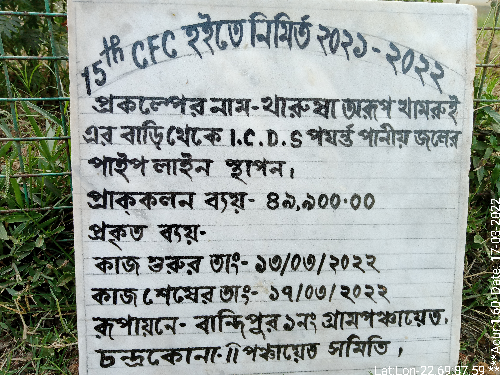 15th CFC হইতে নির্মিত ২০২১-২০২২
প্রকল্পের নাম-খারুষা অরূপ খামরুই
এর বাড়ি থেকে I.C.D.S পর্যন্ত পানীয় জলের
পাইপ লাইন স্থাপন।
প্রাককলন ব্যয়- ৪৯,৯০০.০০
প্রকৃত ব্যয়-
কাজ শুরুর তাং- ১৩/০৩/২০২২
কাজ শেষের তাং- ১৭/০৩/২০২২
রূপায়নে- বান্দিপুর ১নং গ্রামপঞ্চায়েত,
চন্দ্রকোনা-II পঞ্চায়েত সমিতি,
Lat Lon-22.69,87.59